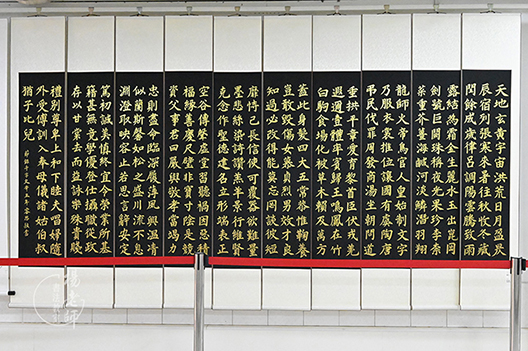 天地玄黃宇宙洪荒日月盈昃
辰宿列張寒來暑往秋收冬藏
閏餘成歲律呂調陽雲騰致雨
露結為霜金生麗水玉出崑岡
劍號巨闕珠稱夜光果珍李柰
菜重芥薑海鹹河淡鱗潛羽翔
龍師火帝鳥官人皇始制文字
乃服衣裳推位讓國有虞陶唐
弔民伐罪周發商湯坐朝問道
垂拱平章愛育黎首臣伏戎羌
遐邇壹體率賓歸王鳴鳳在竹
白駒食場化被草木賴及萬方
蓋此身髮四大五常恭惟鞠養
豈敢毀傷女慕貞烈男效才良
知過必改得能莫忘罔談彼短
靡恃己長信使可覆器欲難量
墨悲絲染詩讚羔羊景行維賢
克念作聖德建名立形端表正
空谷傳聲虛堂習聽禍因惡積
福緣善慶尺璧非寶寸陰是競
資父事君曰嚴與敬孝當竭力
忠則盡命臨深履薄夙興溫凊
似蘭斯馨如松之盛川流不息
淵澄取映容止若思言辭安定
篤初誠美慎終宜令榮業所基
籍甚無竟學優登仕攝職從政
存以甘棠去而益詠樂殊貴賤
禮別尊卑上和下睦夫唱婦隨
外受傅訓入奉母儀諸姑伯叔
猶子比兒